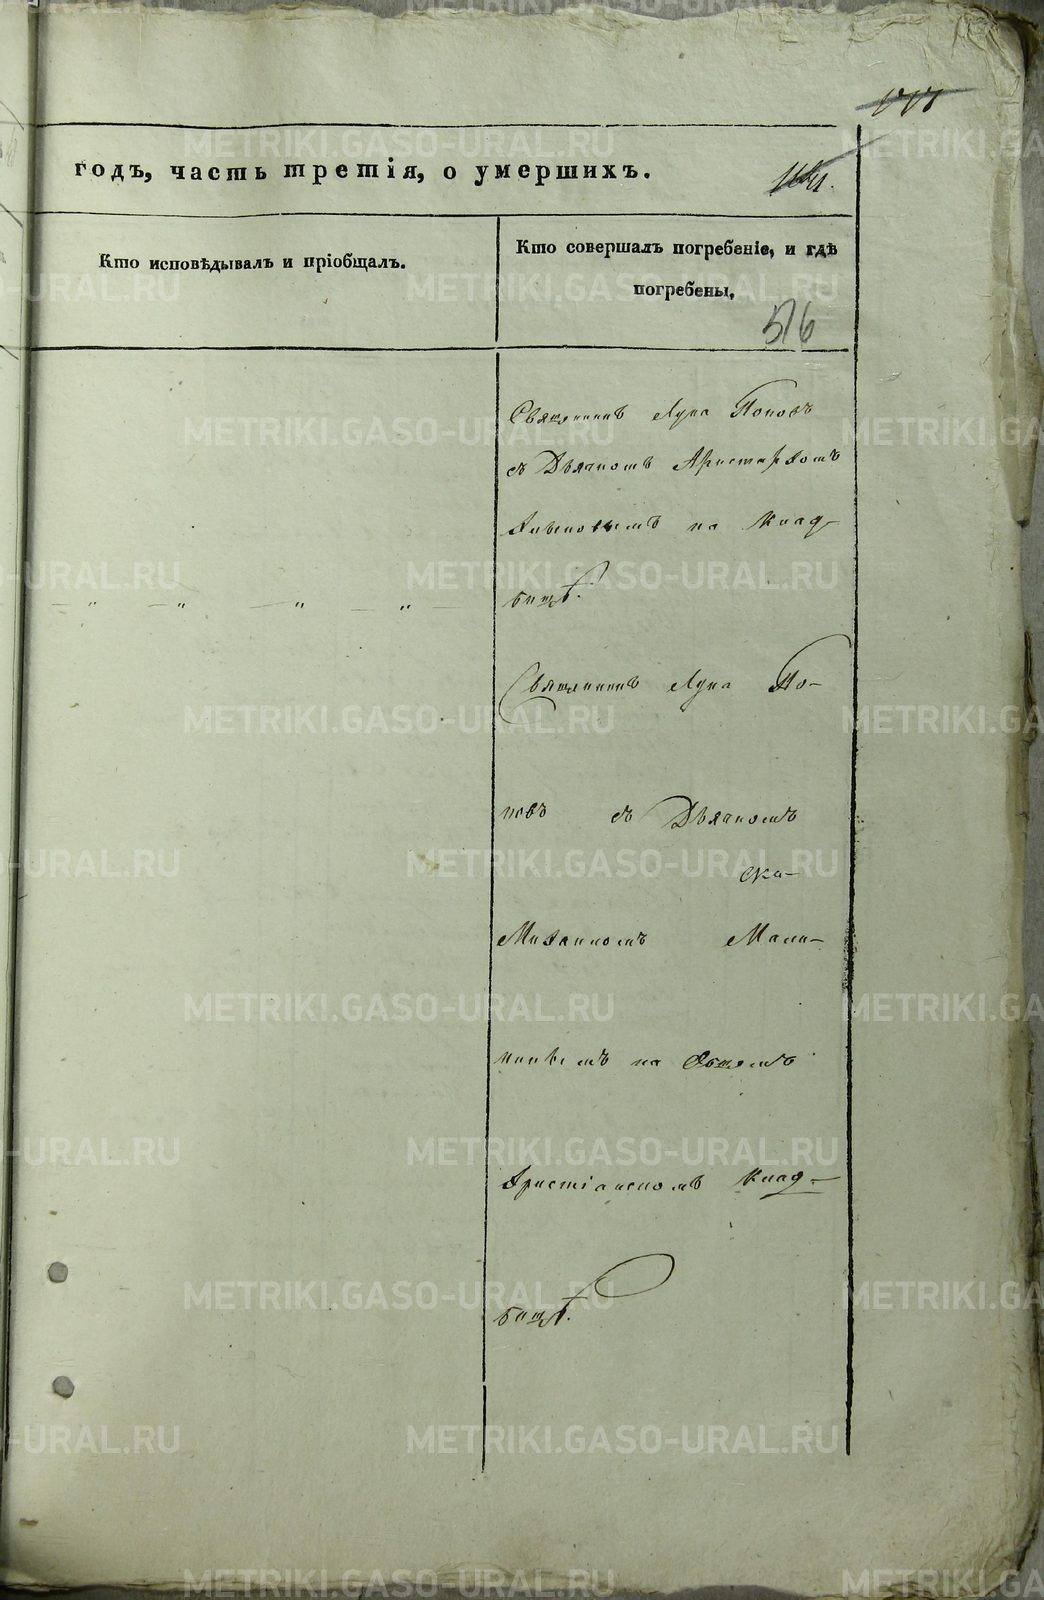 годъ, часть третія, о умершихъ.
Кто исповѣдывалъ и пріобщалъ.
Кто совершалъ погребеніе, и гдѣ
погребены,
516
Священникъ Лука Поповъ
съ Дьячкомъ Аристархомъ
на клад-
бищѣ.
Священникъ Лука По-
повъ съ Дьячкомъ
Михаиломъ
на Общемъ
Христіанскомъ клад-
бищѣ.
METRIKI.GASO-URAL.RU